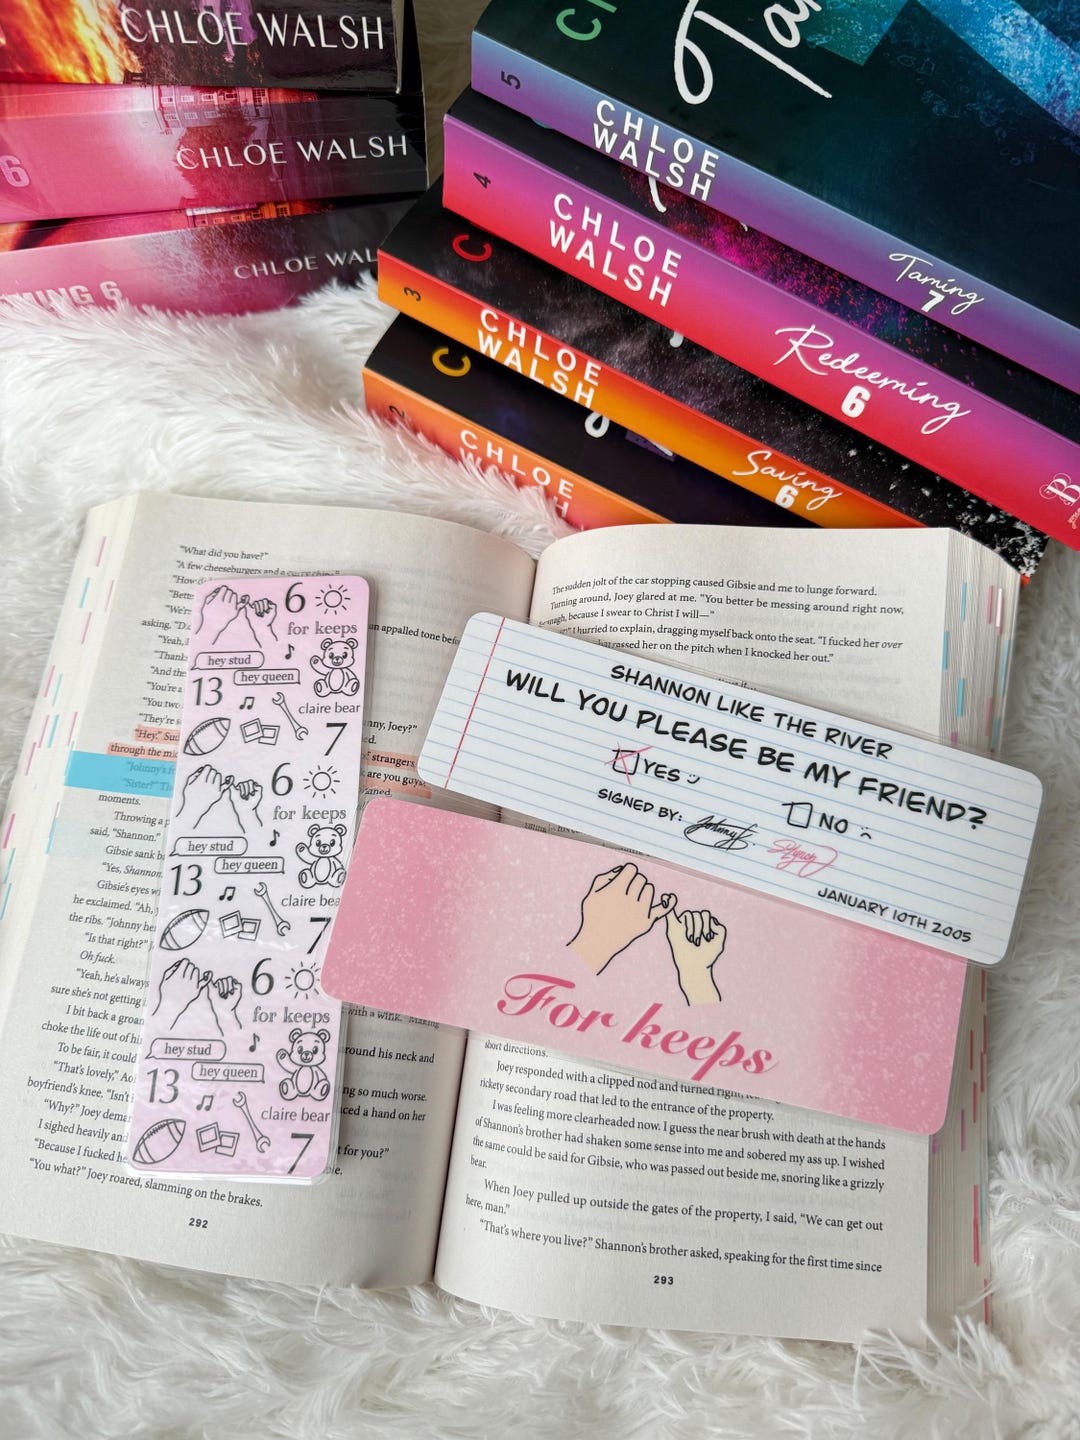 CHLOE WALSH
CHLOE WALSH
6
CHLOE WALSH
6
5
CHLOE
WALSH
Taming
7
4
CHLOE
WALSH
Redeeming
6
3
CHLOE
WALSH
Saving
6
2
CHLOE
WALSH
"What did you have?"
"A few cheeseburgers and a curry chip."
an appalled tone
asking,
"Yeah,
"And the
"You two
"They're
nny, Joey?"
"Hey."
of strangers
through the
are you guys
"Johnny's
"Sister?"
moments.
Throwing a
said, "Shannon."
Gibsie sank
"Yes, Shannon
Gibsie's eyes
he exclaimed. "Ah,
the ribs. "Johnny
"Is that right?"
Oh fuck.
"Yeah, he's always
with a wink. "Making
sure she's not getting
I bit back a groan
round his neck and
choke the life out of
To be fair, it could
ng so much worse.
"That's lovely,"
ced a hand on her
boyfriend's knee. "Isn't
"Why?" Joey
t for you?"
I sighed heavily and
"Because I fucked
"You what?" Joey roared, slamming on the brakes.
292
6
for keeps
hey stud
hey queen
13
claire bear
7
6
for keeps
hey stud
hey queen
13
claire bea
7
6
for keeps
hey stud
hey queen
13
claire bear
7
The sudden jolt of the car stopping caused Gibsie and me to lunge forward.
Turning around, Joey glared at me. "You better be messing around right now,
because I swear to Christ I will—"
I hurried to explain, dragging myself back onto the seat. "I fucked her over
rassed her on the pitch when I knocked her out."
SHANNON LIKE THE RIVER
WILL YOU PLEASE BE MY FRIEND?
YES
NO
SIGNED BY: Johnny K. SLynch
JANUARY 10TH 2005
For keeps
short directions.
Joey responded with a clipped nod and turned right,
rickety secondary road that led to the entrance of the property.
I was feeling more clearheaded now. I guess the near brush with death at the hands
of Shannon's brother had shaken some sense into me and sobered my ass up. I wished
the same could be said for Gibsie, who was passed out beside me, snoring like a grizzly
bear.
When Joey pulled up outside the gates of the property, I said, "We can get out
here, man."
"That's where you live?" Shannon's brother asked, speaking for the first time since
293